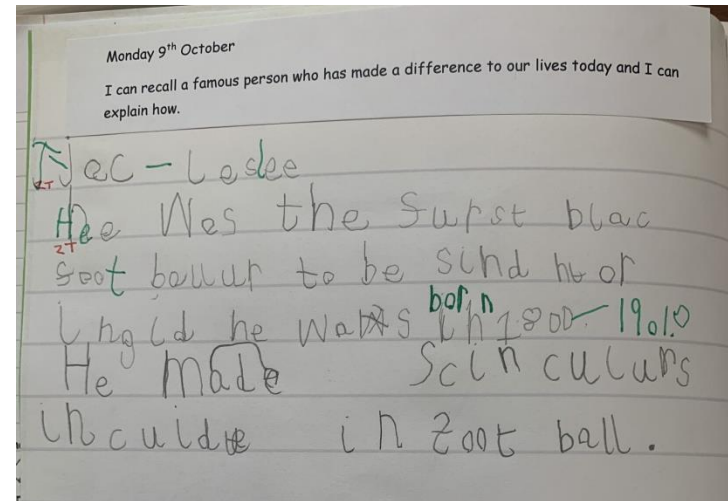 Monday 9th October
I can recall a famous person who has made a difference to our lives today and I can
explain how.
Jac - Leslee
2T
Hee Wes the furst blac
2T
foot ballur to be sind
ingld he was born in 1800-1910
He made Scin culurs
incuidue in foot ball.